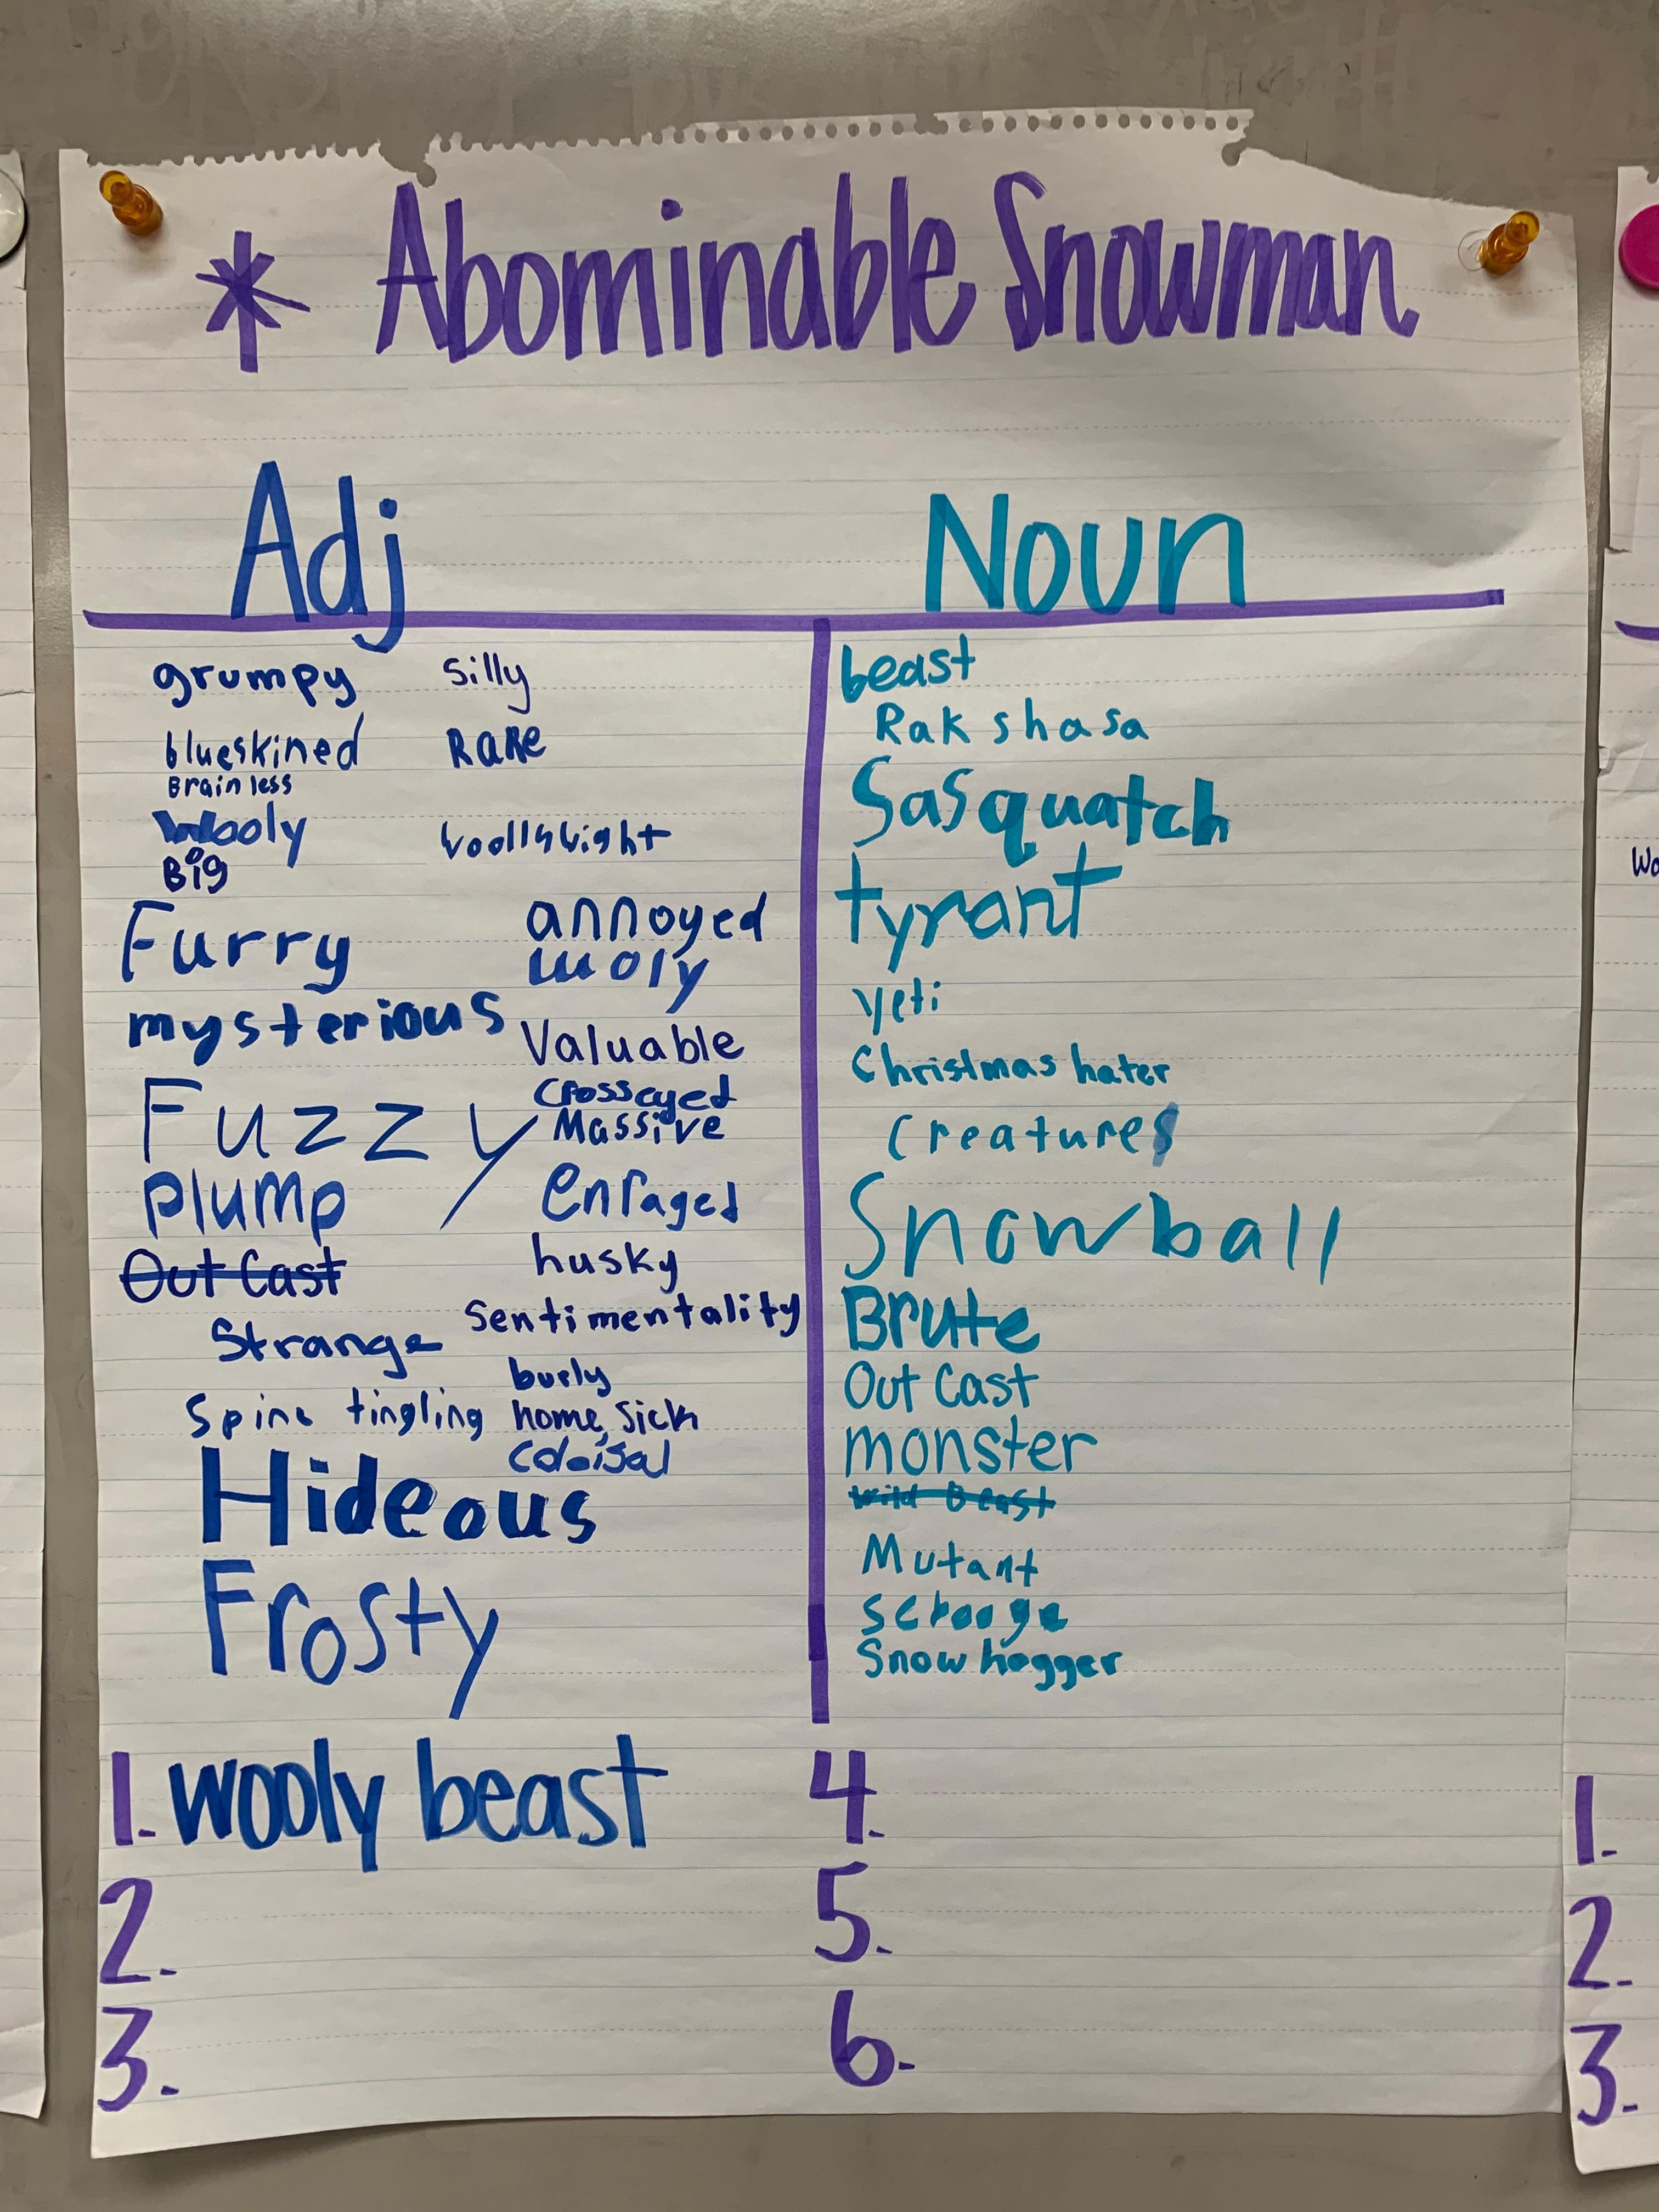 * Abominable Snowman
Adj
Noun
grumpy
blueskined
Brainless
Wooly
Big
Furry
mysterious
Fuzzy
plump
Out Cast
Strange
Spine tingling
Hideous
Frosty
silly
RaRe
annoyed
woly
Valuable
Crosseyed
Massive
enraged
husky
Sentimentality
burly
home sick
beast
Rakshasa
Sasquatch
tyrant
yeti
Christmas hater
Creature
Snowball
Brute
Out Cast
monster
Wild Beast
Mutant
Scrooge
Snow hogger
1. wooly beast
2.
3.
4.
5.
6.
Wo
1.
2.
3.